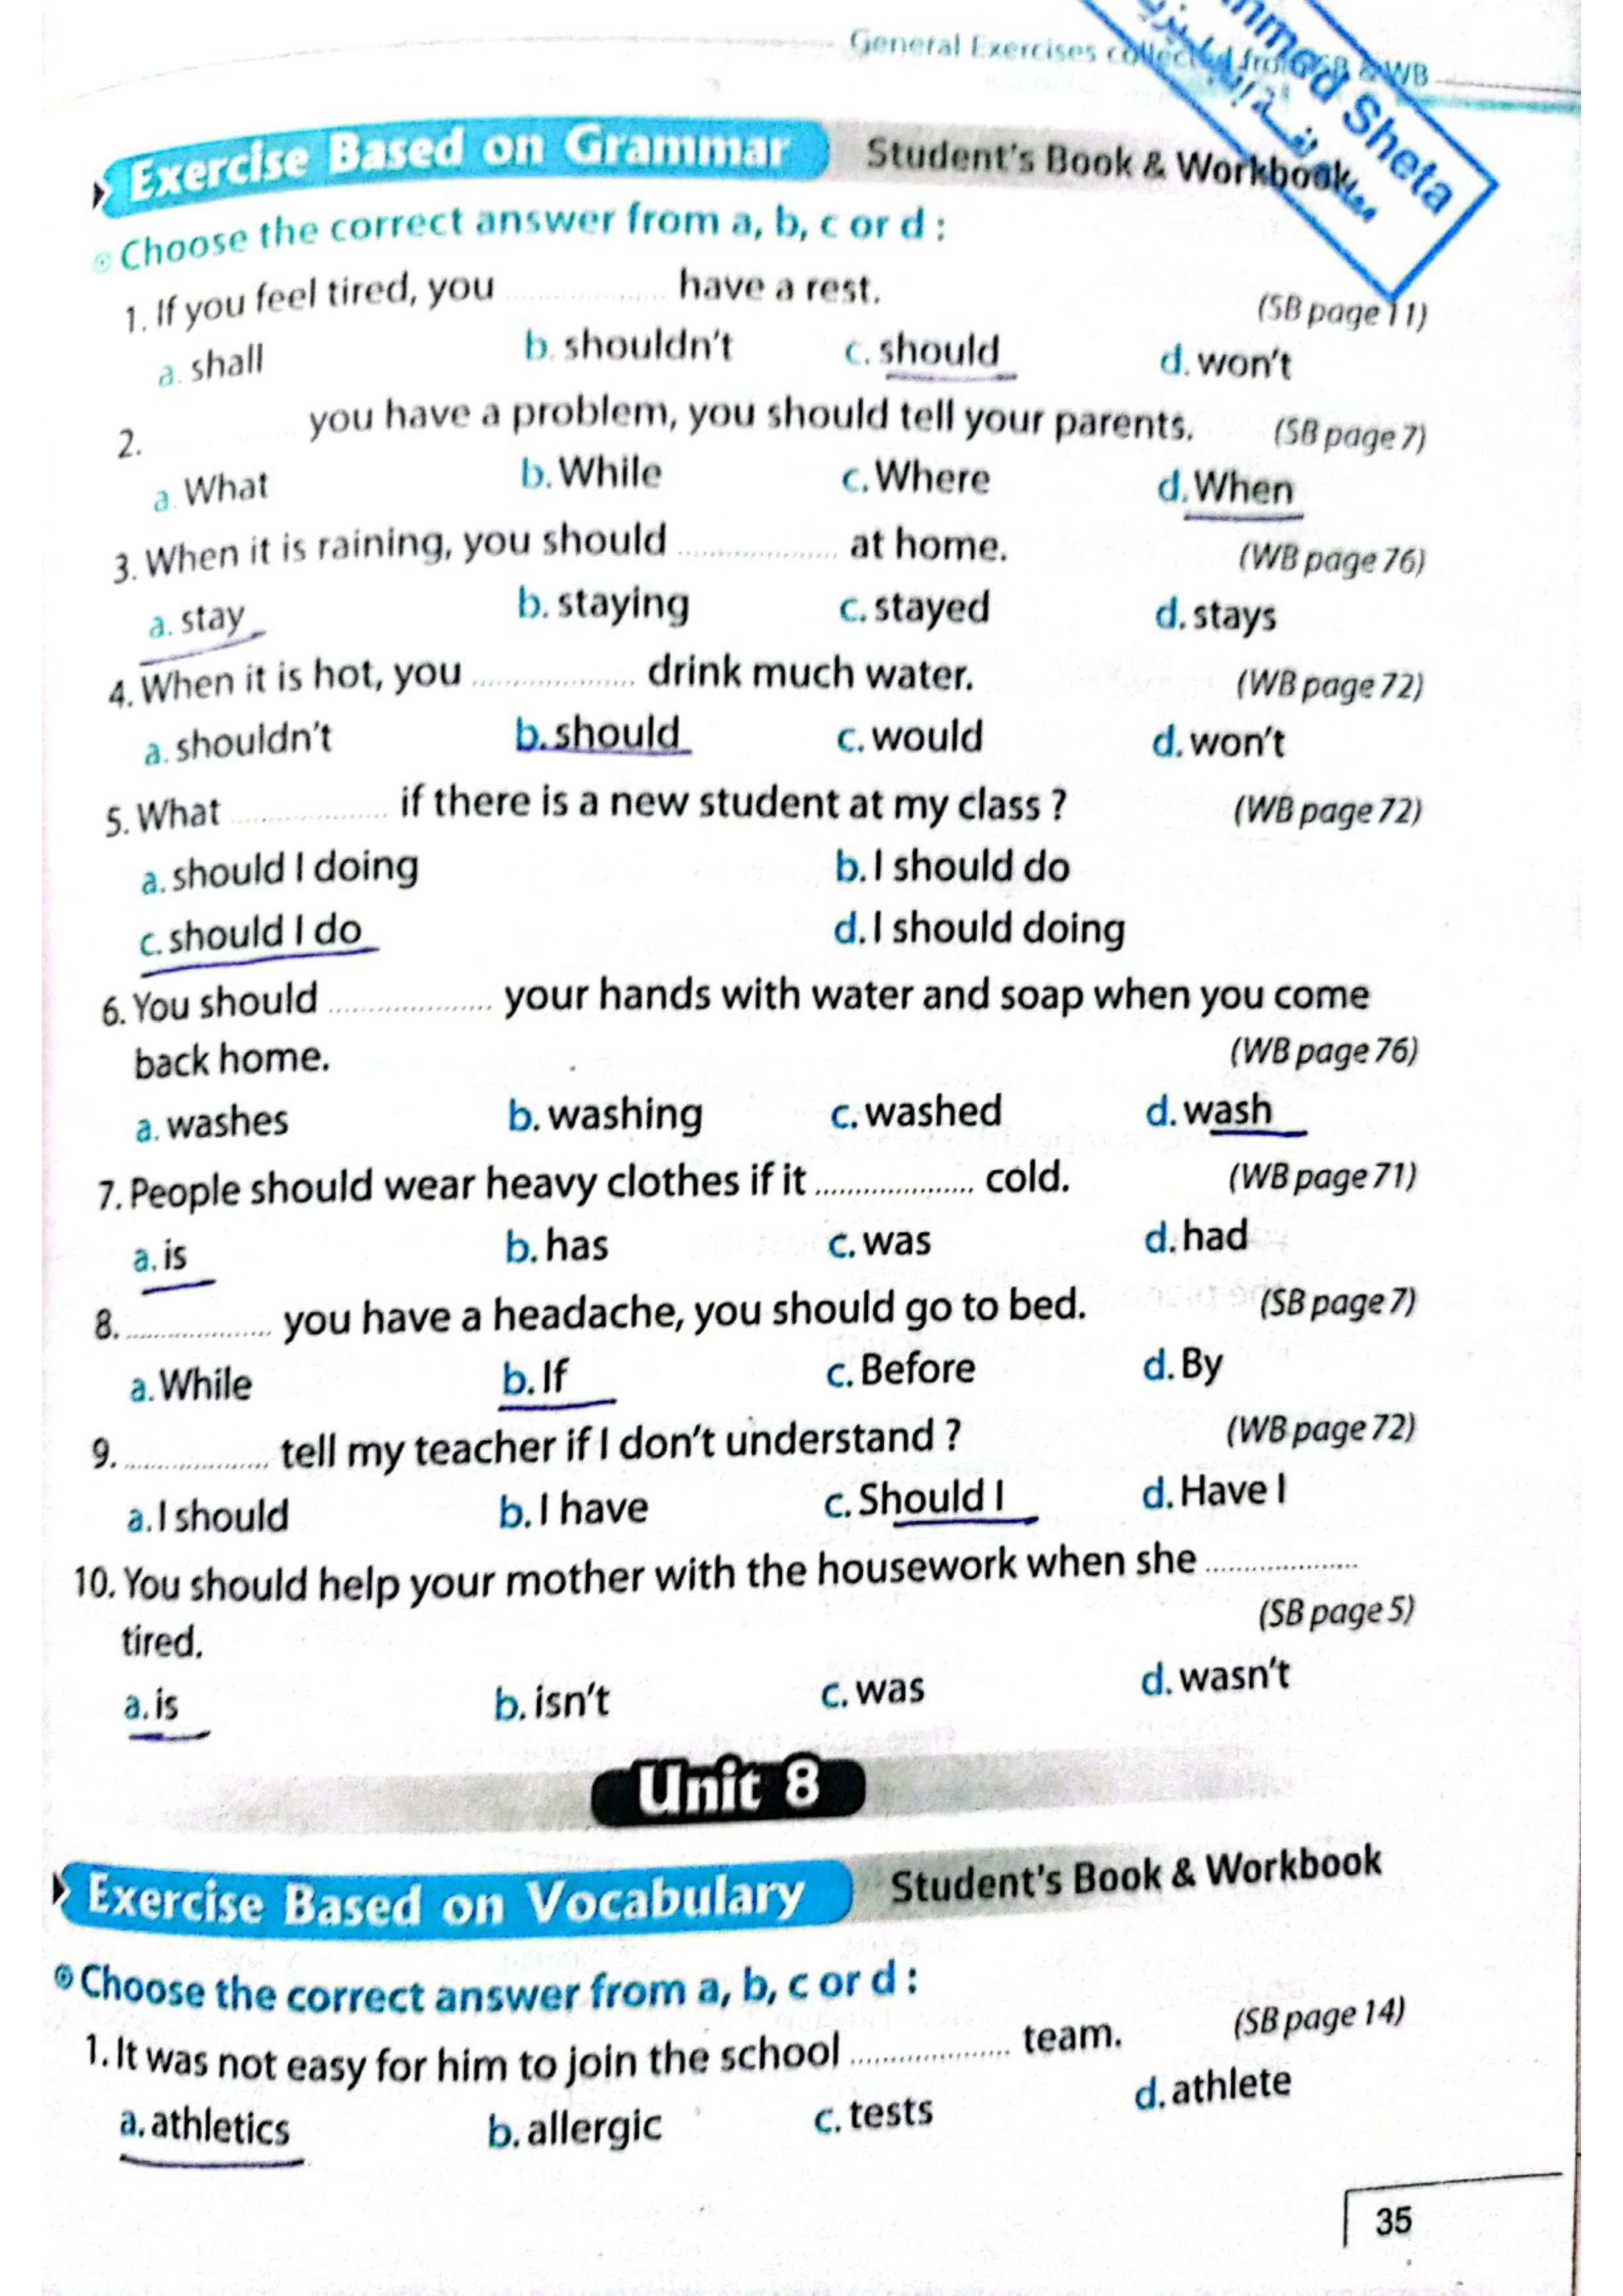 General Exercises collected from SB & WB
hmed Sheta
Exercise Based on Grammar Student's Book & Workbook
Choose the correct answer from a, b, c or d :
1. If you feel tired, you .................... have a rest. (SB page 11)
a. shall b. shouldn't c. should d. won't
2. .................... you have a problem, you should tell your parents. (SB page 7)
a. What b. While c. Where d. When
3. When it is raining, you should .................... at home. (WB page 76)
a. stay b. staying c. stayed d. stays
4. When it is hot, you .................... drink much water. (WB page 72)
a. shouldn't b. should c. would d. won't
5. What .................... if there is a new student at my class ? (WB page 72)
a. should I doing b. I should do
c. should I do d. I should doing
6. You should .................... your hands with water and soap when you come
back home. (WB page 76)
a. washes b. washing c. washed d. wash
7. People should wear heavy clothes if it .................... cold. (WB page 71)
a. is b. has c. was d. had
8. .................... you have a headache, you should go to bed. (SB page 7)
a. While b. If c. Before d. By
9. .................... tell my teacher if I don't understand ? (WB page 72)
a. I should b. I have c. Should I d. Have I
10. You should help your mother with the housework when she ....................
tired. (SB page 5)
a. is b. isn't c. was d. wasn't
Unit 8
Exercise Based on Vocabulary Student's Book & Workbook
Choose the correct answer from a, b, c or d :
1. It was not easy for him to join the school .................... team. (SB page 14)
a. athletics b. allergic c. tests d. athlete
35